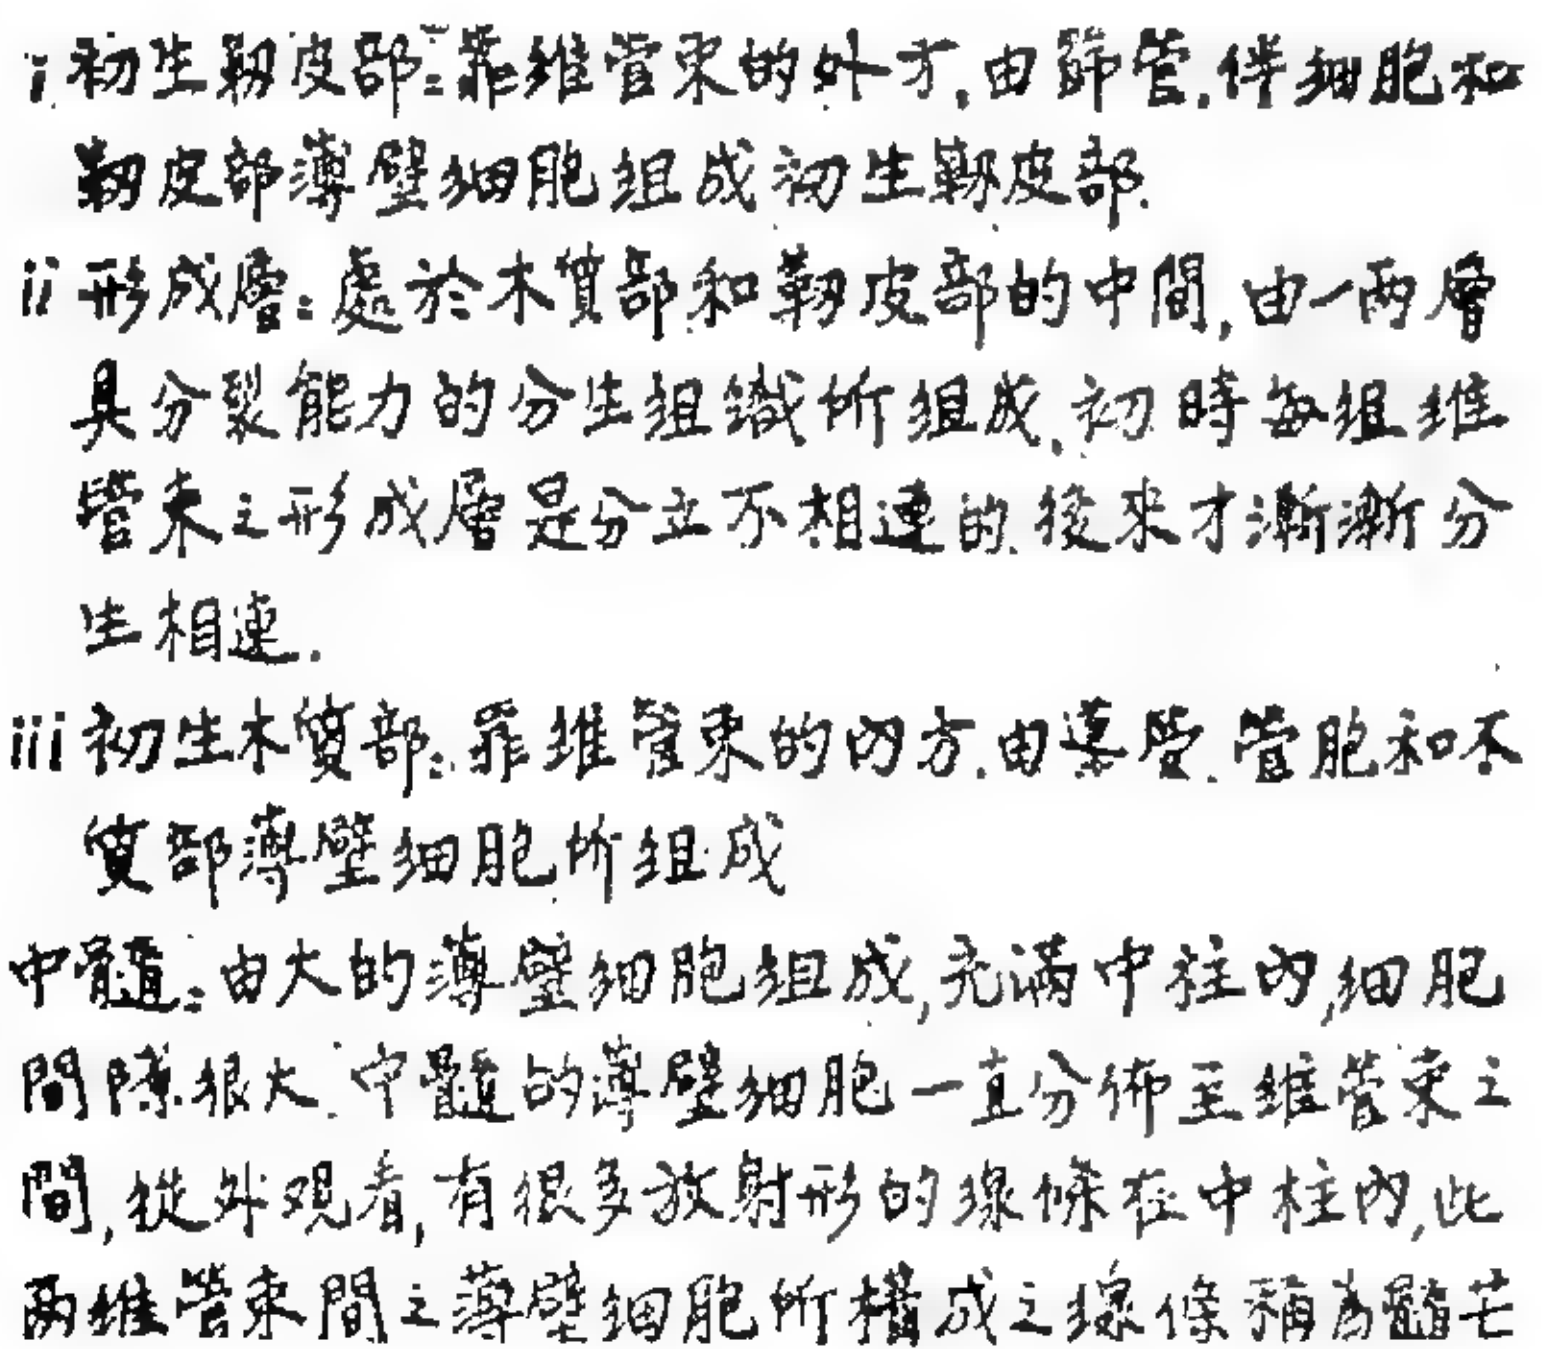 i 初生韌皮部:靠維管束的外方,由篩管.伴細胞和
韌皮部薄壁細胞組成初生韌皮部.
ii 形成層:處於木質部和韌皮部的中間,由一兩層
具分裂能力的分生組織所組成.初時每組維
管束之形成層是分立不相連的.後來才漸漸分
生相連.
iii 初生木質部:靠維管束的內方.由導管.管胞和木
質部薄壁細胞所組成
中髓:由大的薄壁細胞組成,充滿中柱內,細胞
間隙很大.中髓的薄壁細胞一直分佈至維管束之
間,從外觀看,有很多放射形的線條在中柱內,此
兩維管束間之薄壁細胞所構成之線條稱為髓芒